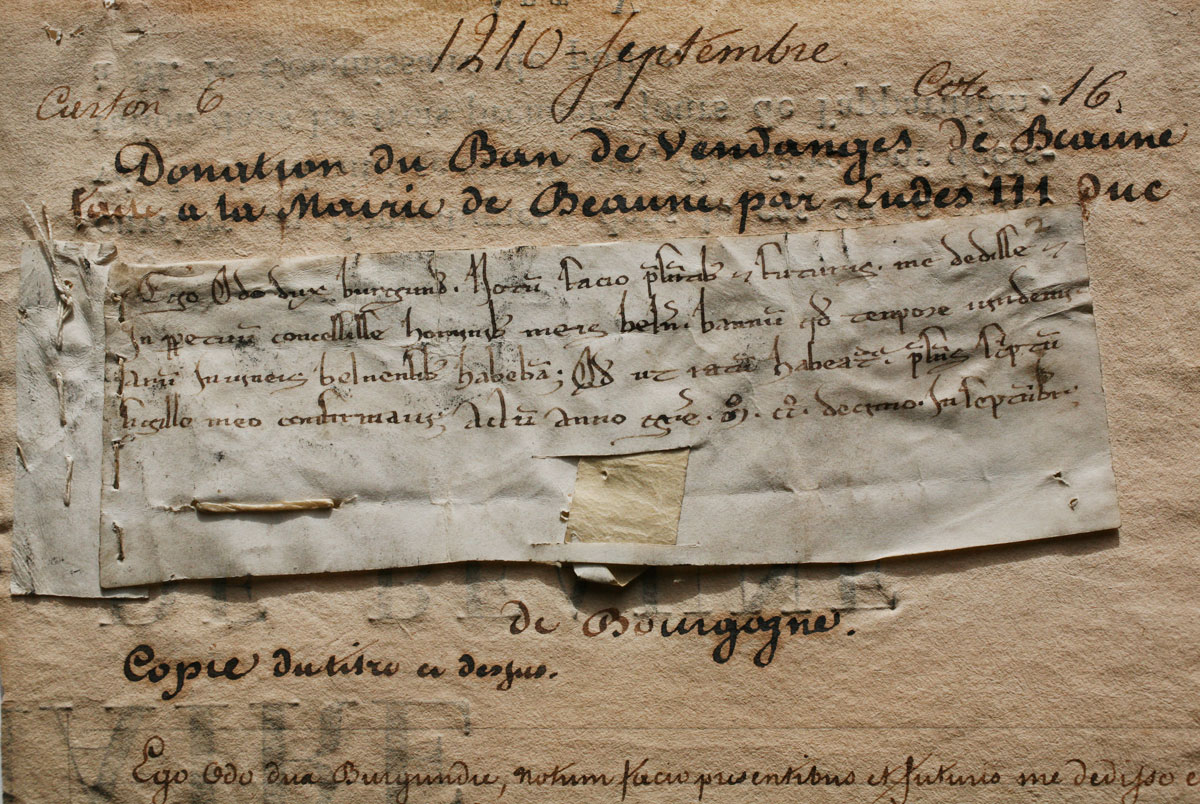 1210 - Septembre.
Carton 6
Cote 16.
Donation du Ban de Vendanges de Beaune
faite a la Mairie de Beaune par Eudes III Duc
Ego Odo dux burgund. Notũ facio p̃sentib⁊ ⁊ futuris. me dedisse ⁊
In ppetuũ concessisse hominib meis beln̄. bannũ qd tempore uindemi
arum in uineis belnensib habebã; Qd ut ratũ habeat. p̃sens sc̃ptũ
sigillo meo confirmaui; Actũ anno gr̃e. M. CC. decimo. In septembr.
de Bourgogne.
Copie du titre ci dessus.
Ego Odo dux Burgundie, notum facio presentibus et futuris me dedisse e